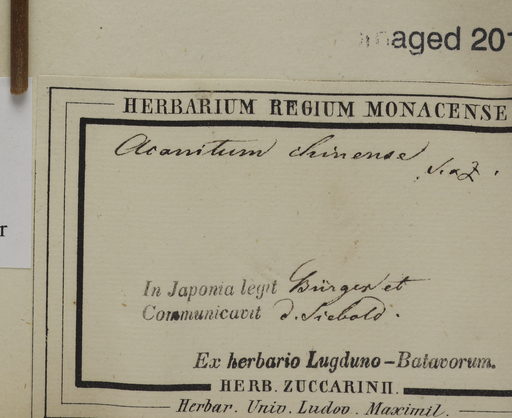 aged 201
HERBARIUM REGIUM MONACENSE
Aconitum chinense
S. & Z.
In Japonia legit Bürger et
Communicavit d. Siebold.
r
Ex herbario Lugduno-Batavorum.
HERB. ZUCCARINII.
Herbar. Univ. Ludov. Maximil.